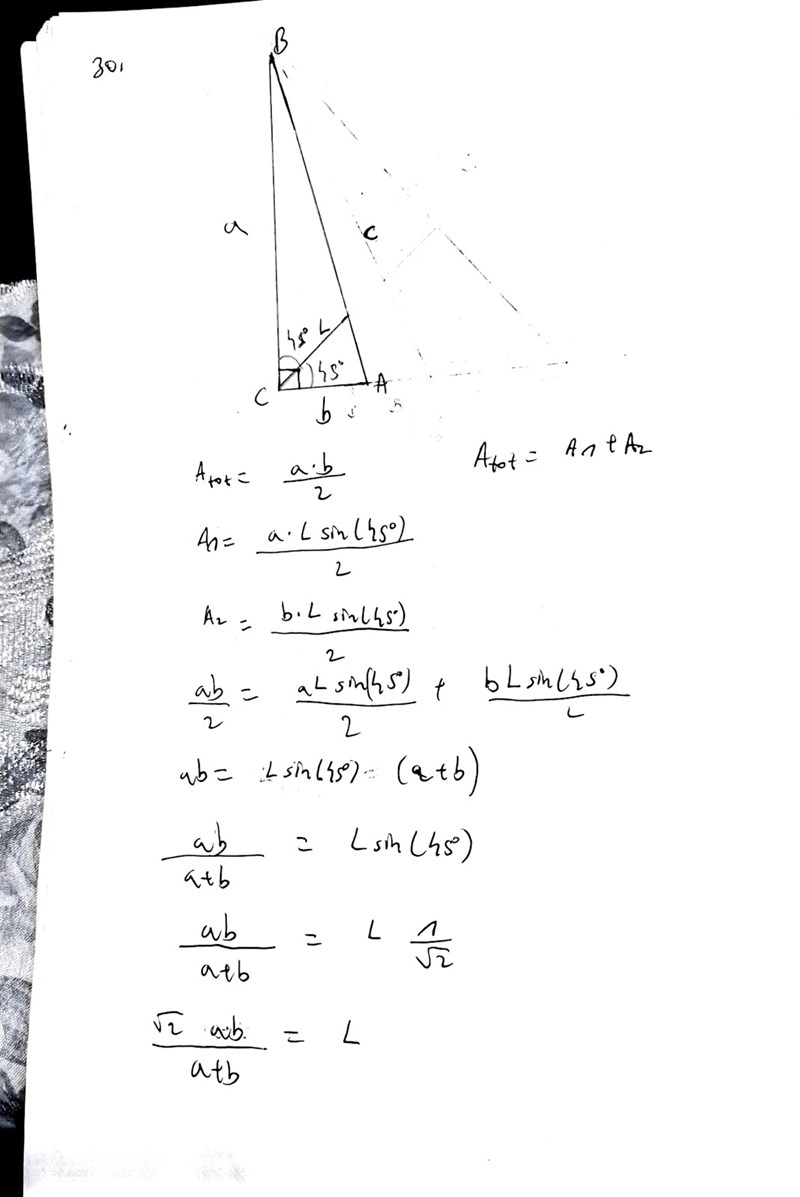 301
B
a
c
45° L
45°
C
A
b
A_tot = a·b / 2
A_tot = A1 + A2
A1 = a·L sin(45°) / 2
A2 = b·L sin(45°) / 2
ab / 2 = aL sin(45°) / 2 + bL sin(45°) / 2
ab = L sin(45°) · (a+b)
ab / a+b = L sin(45°)
ab / a+b = L 1 / √2
√2 ab / a+b = L